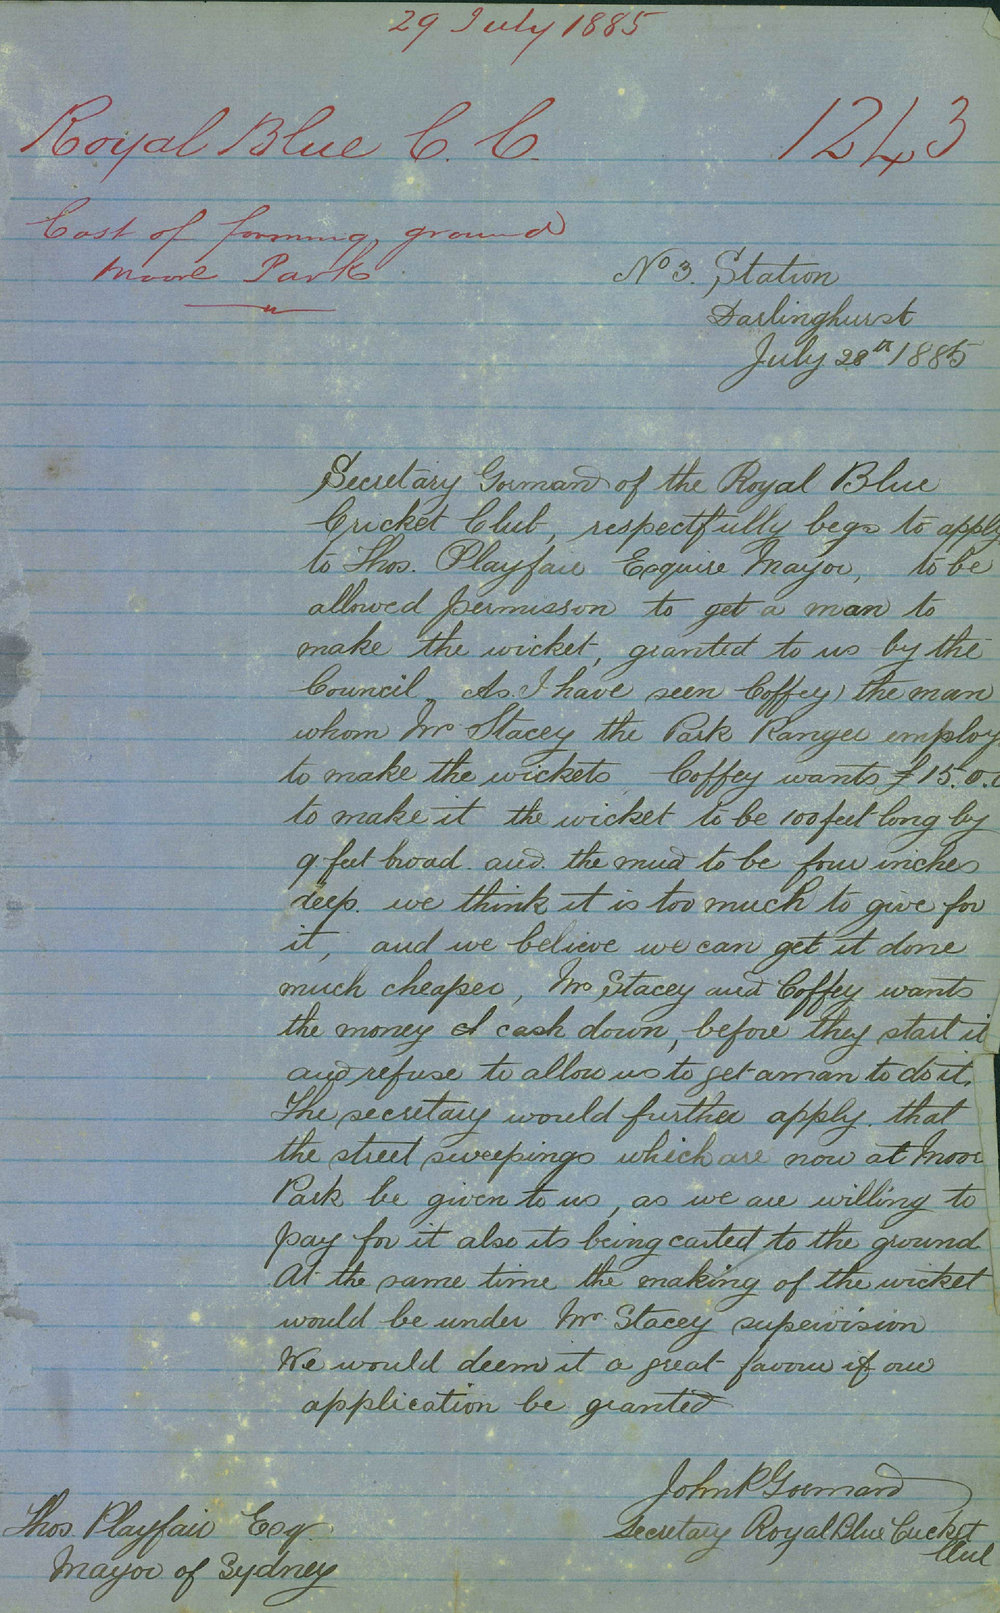 29 July 1885
Royal Blue C. C. 1243
Cost of forming ground
Moore Park
No 3. Station
Darlinghurst
July 28th 1885
Secretary Gormand of the Royal Blue
Cricket Club, respectfully begs to apply
to Thos. Playfair Esquire Mayor, to be
allowed permisson to get a man to
make the wicket, granted to us by the
Council, As I have seen Coffey, the man
whom Mr Stacey the Park Ranger employ
to make the wickets, Coffey wants £15.0.0
to make it the wicket to be 100 feet long by
9 feet broad. and. the mud to be four inches
deep. we think it is too much to give for
it, and we believe we can get it done
much cheaper, Mr Stacey and Coffey wants
the money cash down, before they start it
and refuse to allow us to get a man to do it.
The secretary would further apply. that
the street sweepings which are now at Moore
Park be given to us, as we are willing to
pay for it also its being carted to the ground
At the same time the making of the wicket
would be under Mr Stacey supervision
We would deem it a great favour if our
application be granted
John P Gormand
Secretary Royal Blue Cricket
Club
Thos. Playfair Esq.
Mayor of Sydney